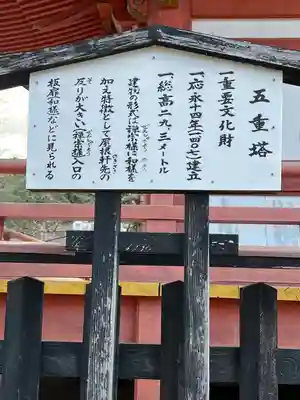 五重塔
一重要文化財
一、応永十四年(一四〇七)建立
一、総高二九、三メートル
建物の形式は禅宗様に和様を
加え特徴として屋根軒先の
反りが大きい(禅宗様)入口の
板扉(和様)などに見られる